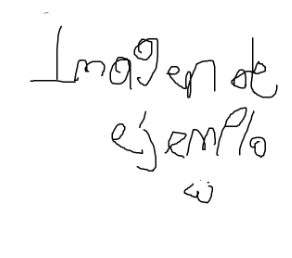 Imagen de
ejemplo